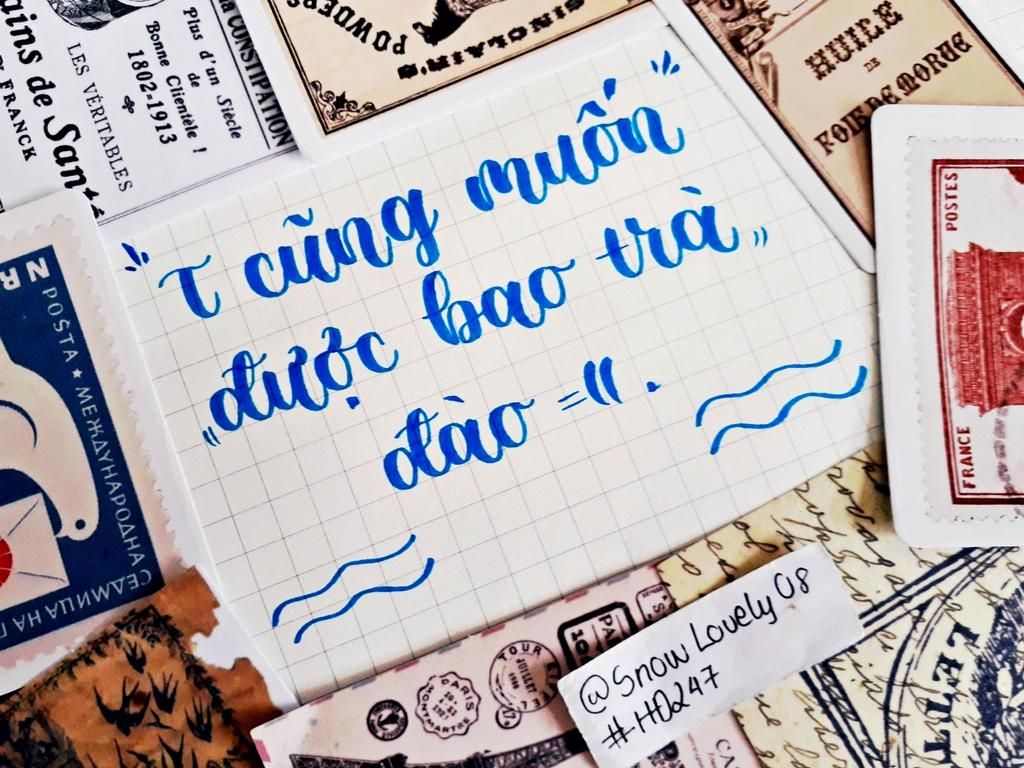 ains de Sant
FRANCK
LES VÉRITABLES
Plus d'un Siècle
Bonne Clientèle !
1802-1913
CONSTIPATION
SINCLAIR'S
POWDERS
HUILE
DE
FOIE DE MORUE
" τ cũng muốn "
„ được bao trà „
đào =(( .
POSTA ★ МЕЖДУНАРОДНА
СЕДМИЦА НА П
POSTES
FRANCE
TOUR EIFFEL
PARIS
LETT
@Snow Lovely 08
#HD247